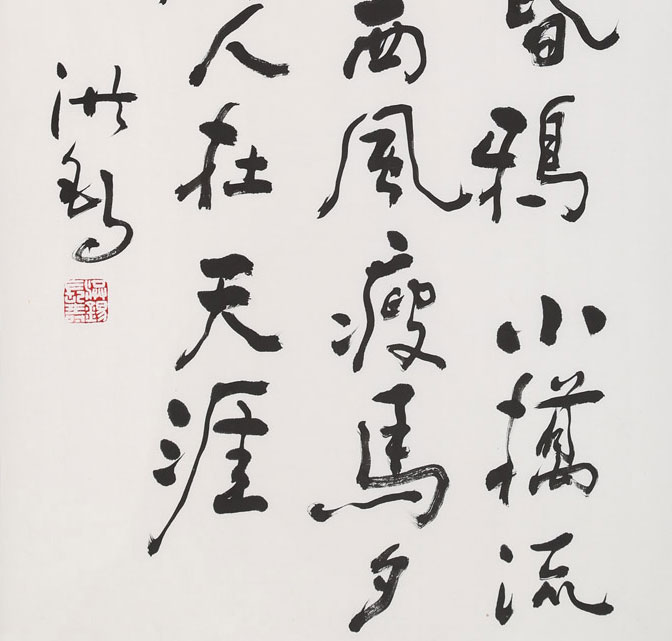 昏鴉 小橋流
西風瘦馬夕
人在天涯
洪